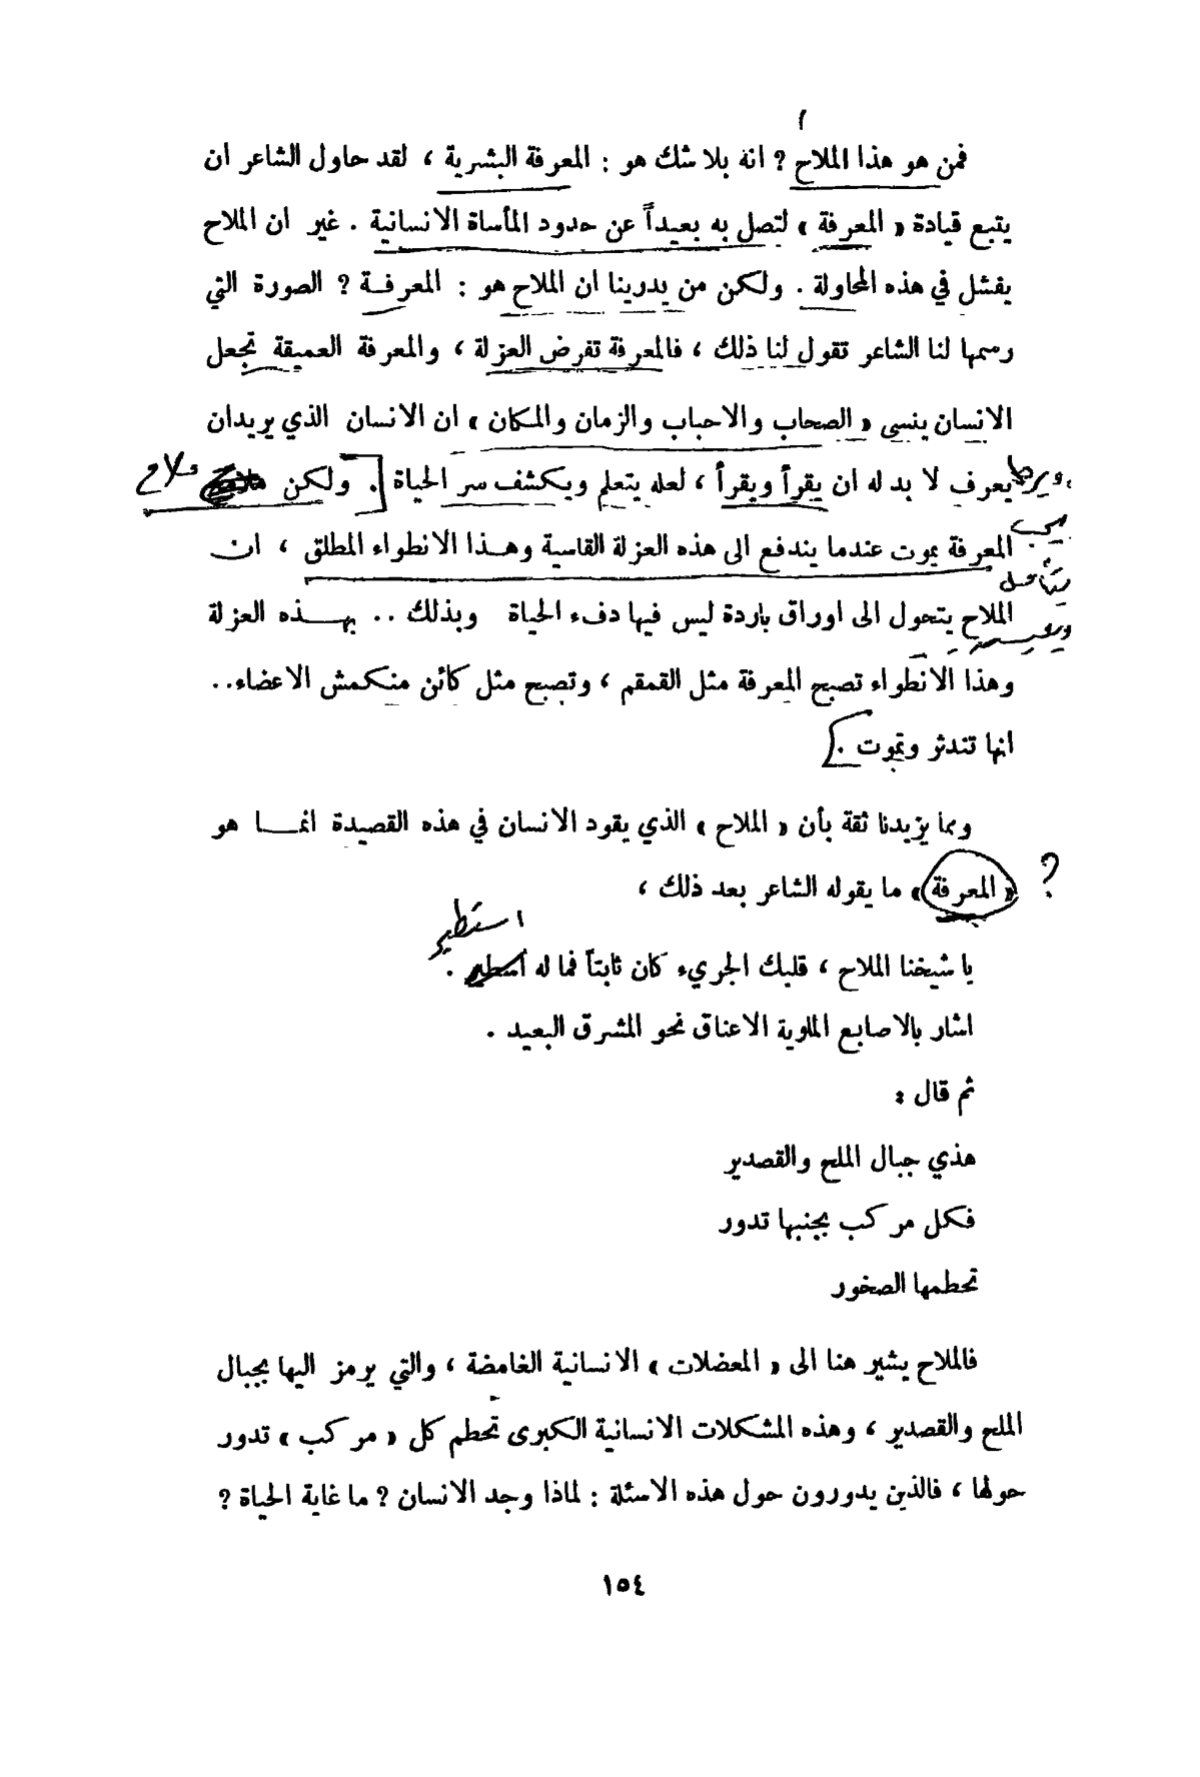 فمن هو هذا الملاح ؟ انه بلا شك هو : المعرفة البشرية ، لقد حاول الشاعر ان
يتبع قيادة « المعرفة » لتصل به بعيداً عن حدود المأساة الانسانية . غير ان الملاح
يفشل في هذه المحاولة . ولكن من يدرينا ان الملاح هو : المعرفة ؟ الصورة التي
رسمها لنا الشاعر تقول لنا ذلك ، فالمعرفة تفرض العزلة ، والمعرفة العميقة تجعل
الانسان ينسى « الصحاب والاحباب والزمان والمكان » ان الانسان الذي يريدان
يعرف لا بد له ان يقرأ ويقرأ ، لعله يتعلم ويكشف سر الحياة . ولكن ملاح
المعرفة يموت عندما يندفع الى هذه العزلة القاسية وهـذا الانطواء المطلق ، ان
الملاح يتحول الى اوراق باردة ليس فيها دفء الحياة وبذلك .. بهـــذه العزلة
وهذا الانطواء تصبح المعرفة مثل القمقم ، وتصبح مثل كائن منكمش الاعضاء..
انها تندثر وتموت .
ومما يزيدنا ثقة بأن « الملاح » الذي يقود الانسان في هذه القصيدة انمـــا هو
؟ « المعرفة » ما يقوله الشاعر بعد ذلك ،
استطير
يا شيخنا الملاح ، قلبك الجريء كان ثابتاً فما له اسطير .
اشار بالاصابع الملوية الاعناق نحو المشرق البعيد .
ثم قال :
هذي جبال الملح والقصدير
فكل مركب بجنبها تدور
تحطمها الصخور
فالملاح يشير هنا الى « المعضلات » الانسانية الغامضة ، والتي يرمز اليها بجبال
الملح والقصدير ، وهذه المشكلات الانسانية الكبرى تحطم كل « مركب » تدور
حولها ، فالذين يدورون حول هذه الاسئلة : لماذا وجد الانسان ؟ ما غاية الحياة ؟
١٥٤